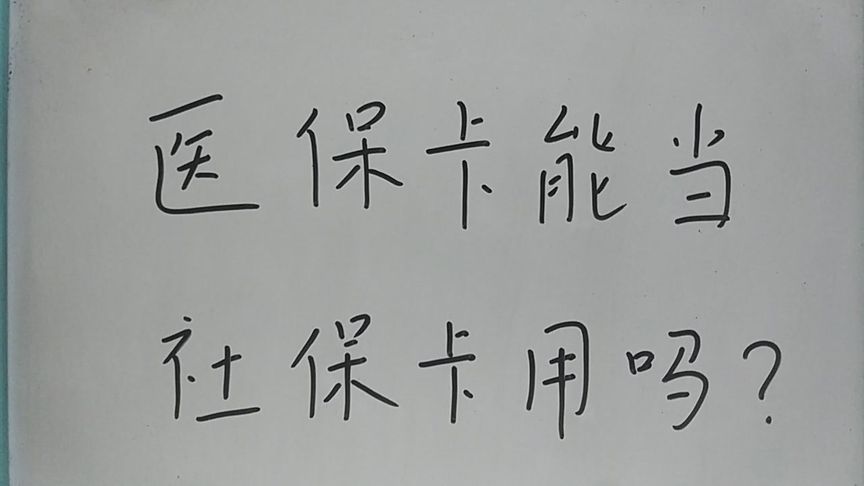 医保卡能当
社保卡用吗?